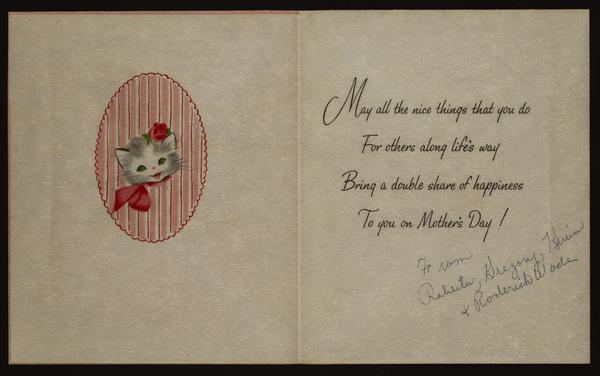 May all the nice things that you do
For others along life's way
Bring a double share of happiness
To you on Mother's Day!
From
Roberta, Gregory, Kevin
& Roderick Wade